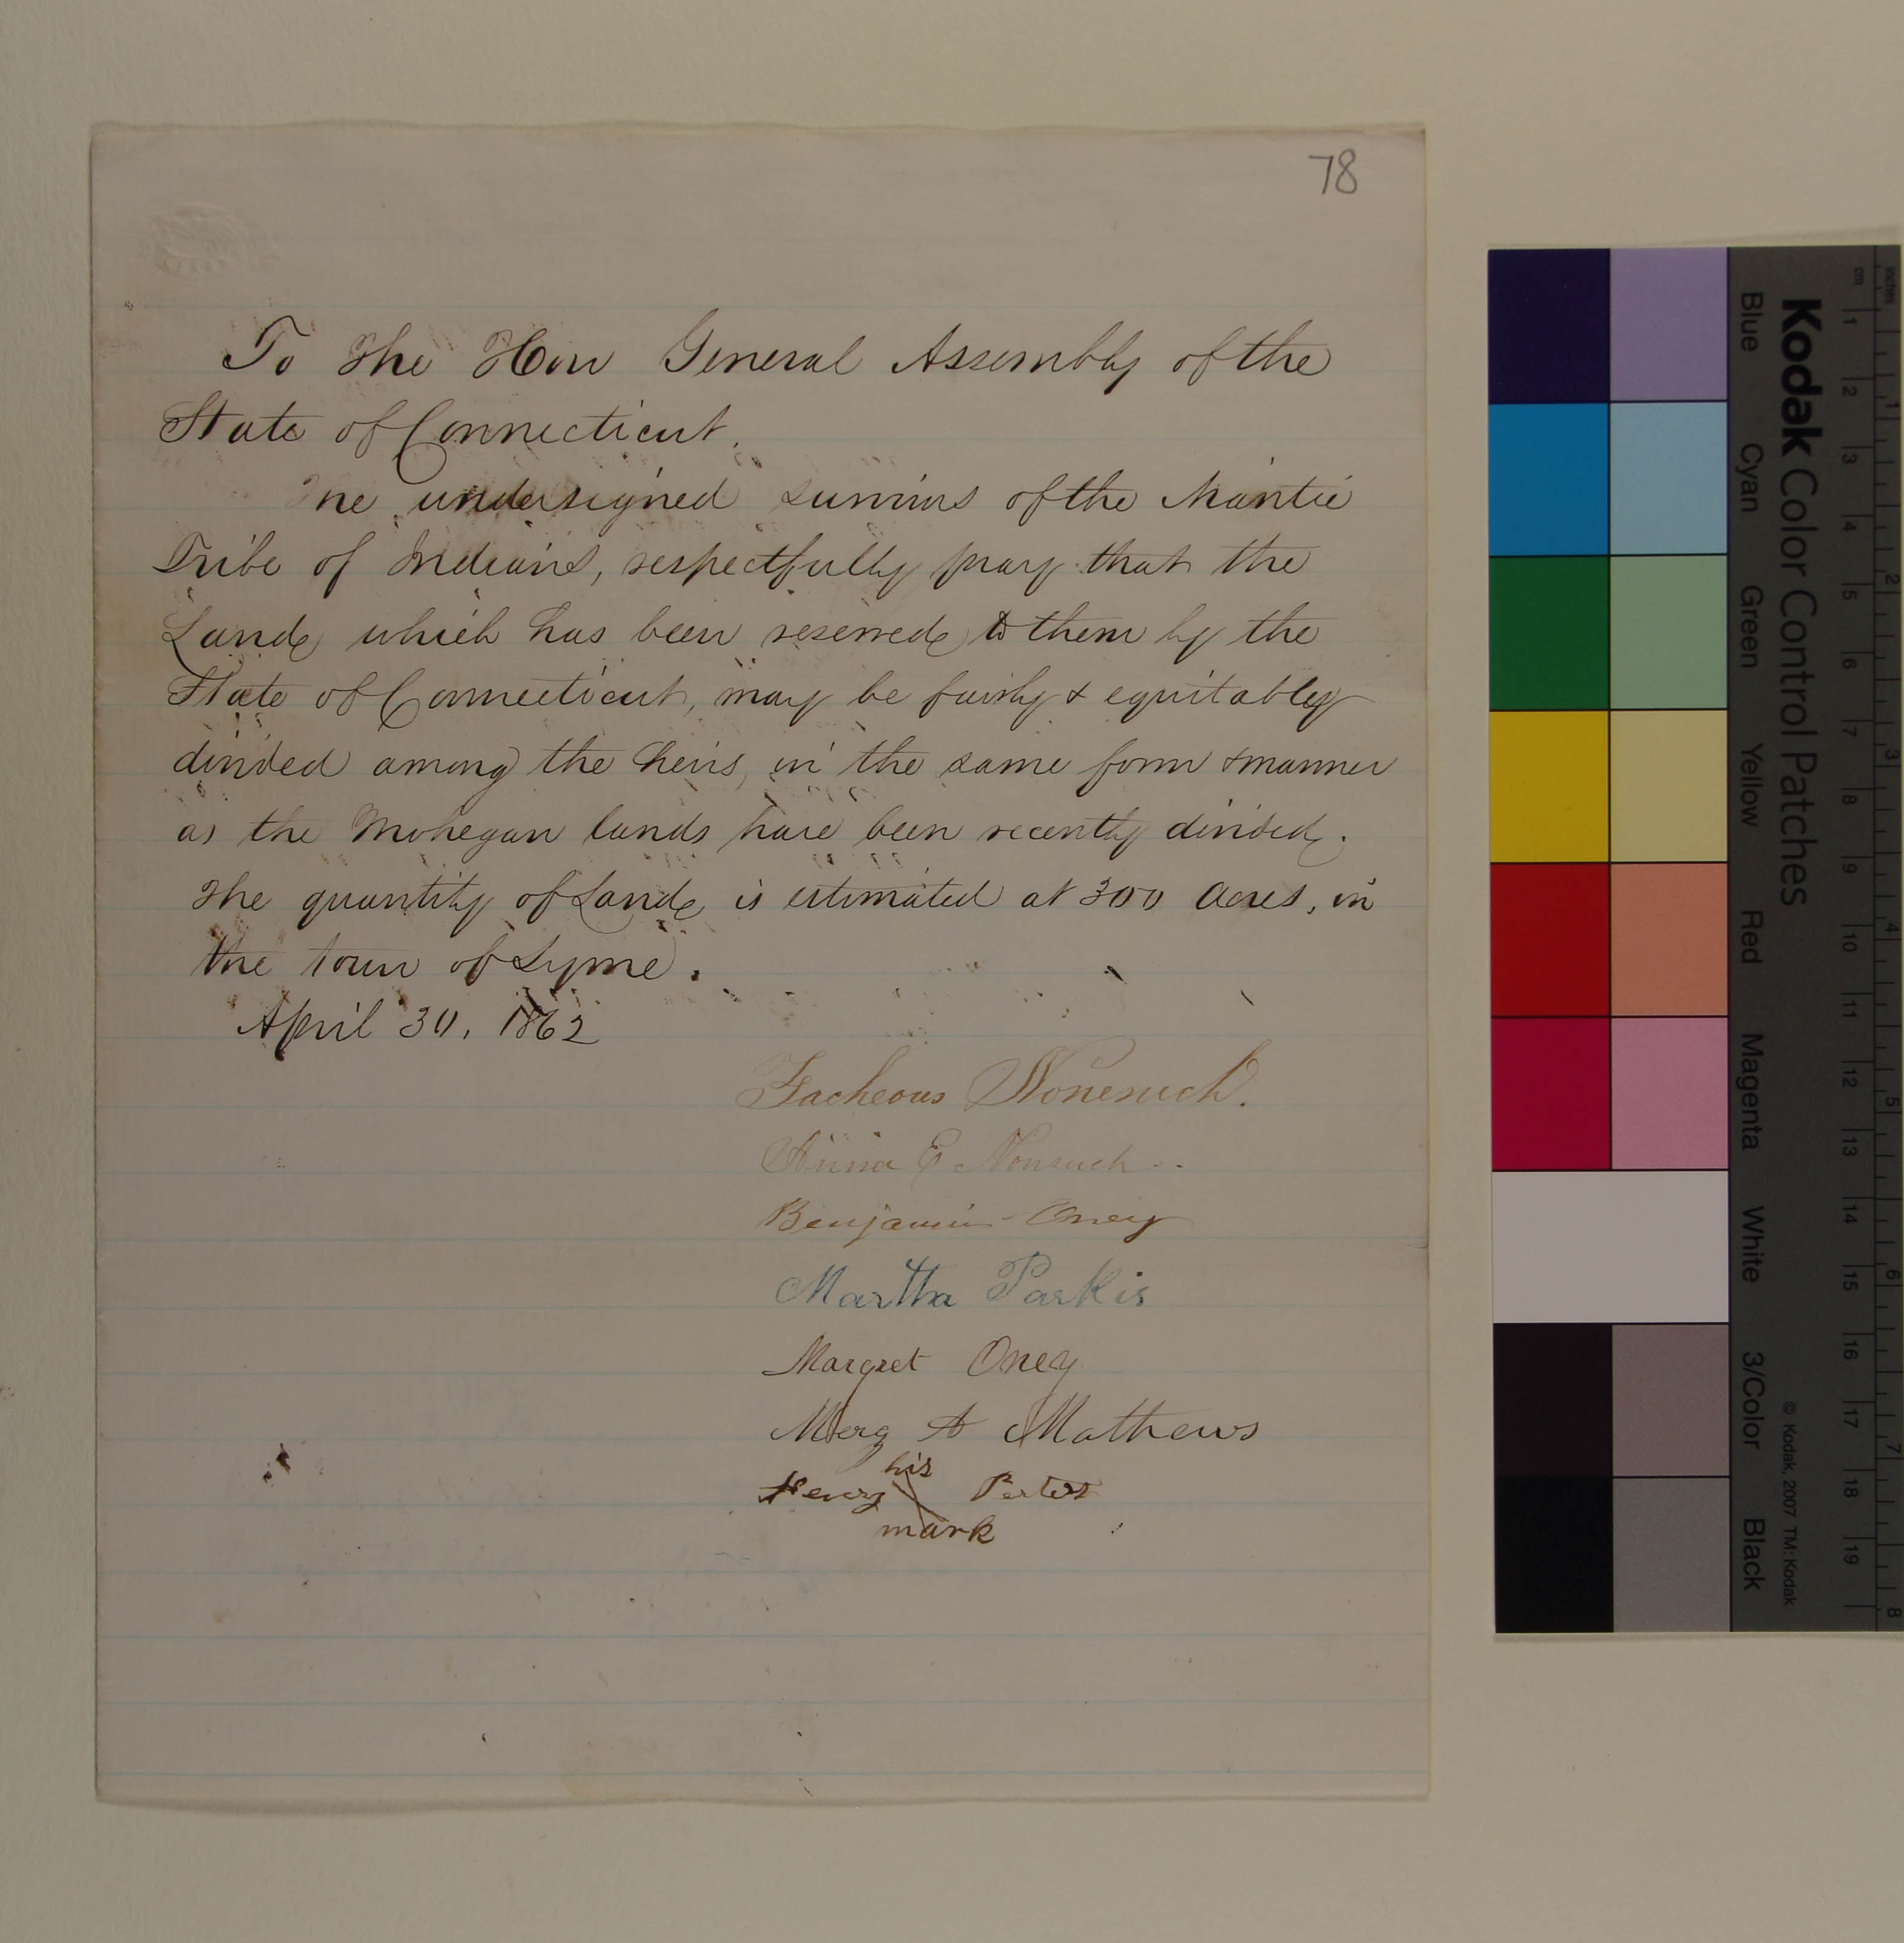 78
To the Hon General Assembly of the
State of Connecticut.
The undersigned survivors of the Niantic
Tribe of Indians, respectfully pray that the
Land which has been reserved to them by the
State of Connecticut, may be fairly & equitably
divided among the heirs, in the same form & manner
as the Mohegan lands have been recently divided.
The quantity of Land is estimated at 300 Acres, in
the town of Lyme.
April 30, 1862
Zacheous Nonesuch.
Anna E Nonsuch
Benjamin Oney
Martha Parkis
Margret Oney
Mery A Mathews
his
Henry X
mark
Kodak Color Control Patches
Blue Cyan Green Yellow Red Magenta White 3/Color Black
© Kodak, 2007 TM: Kodak
cm 1 2 3 4 5 6 7 8 9 10 11 12 13 14 15 16 17 18 19
inches 1 2 3 4 5 6 7 8